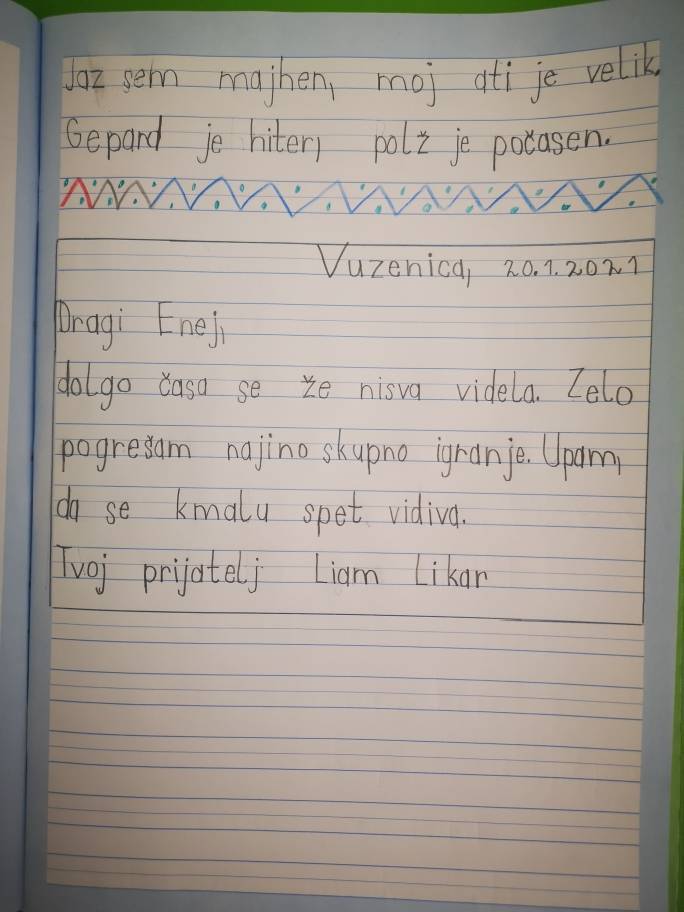 Jaz sem majhen, moj ati je velik.
Gepard je hiter, polž je počasen.
Vuzenica, 20.1.2021
Dragi Enej,
dolgo časa se že nisva videla. Zelo
pogrešam najino skupno igranje. Upam,
da se kmalu spet vidiva.
Tvoj prijatelj Liam Likar